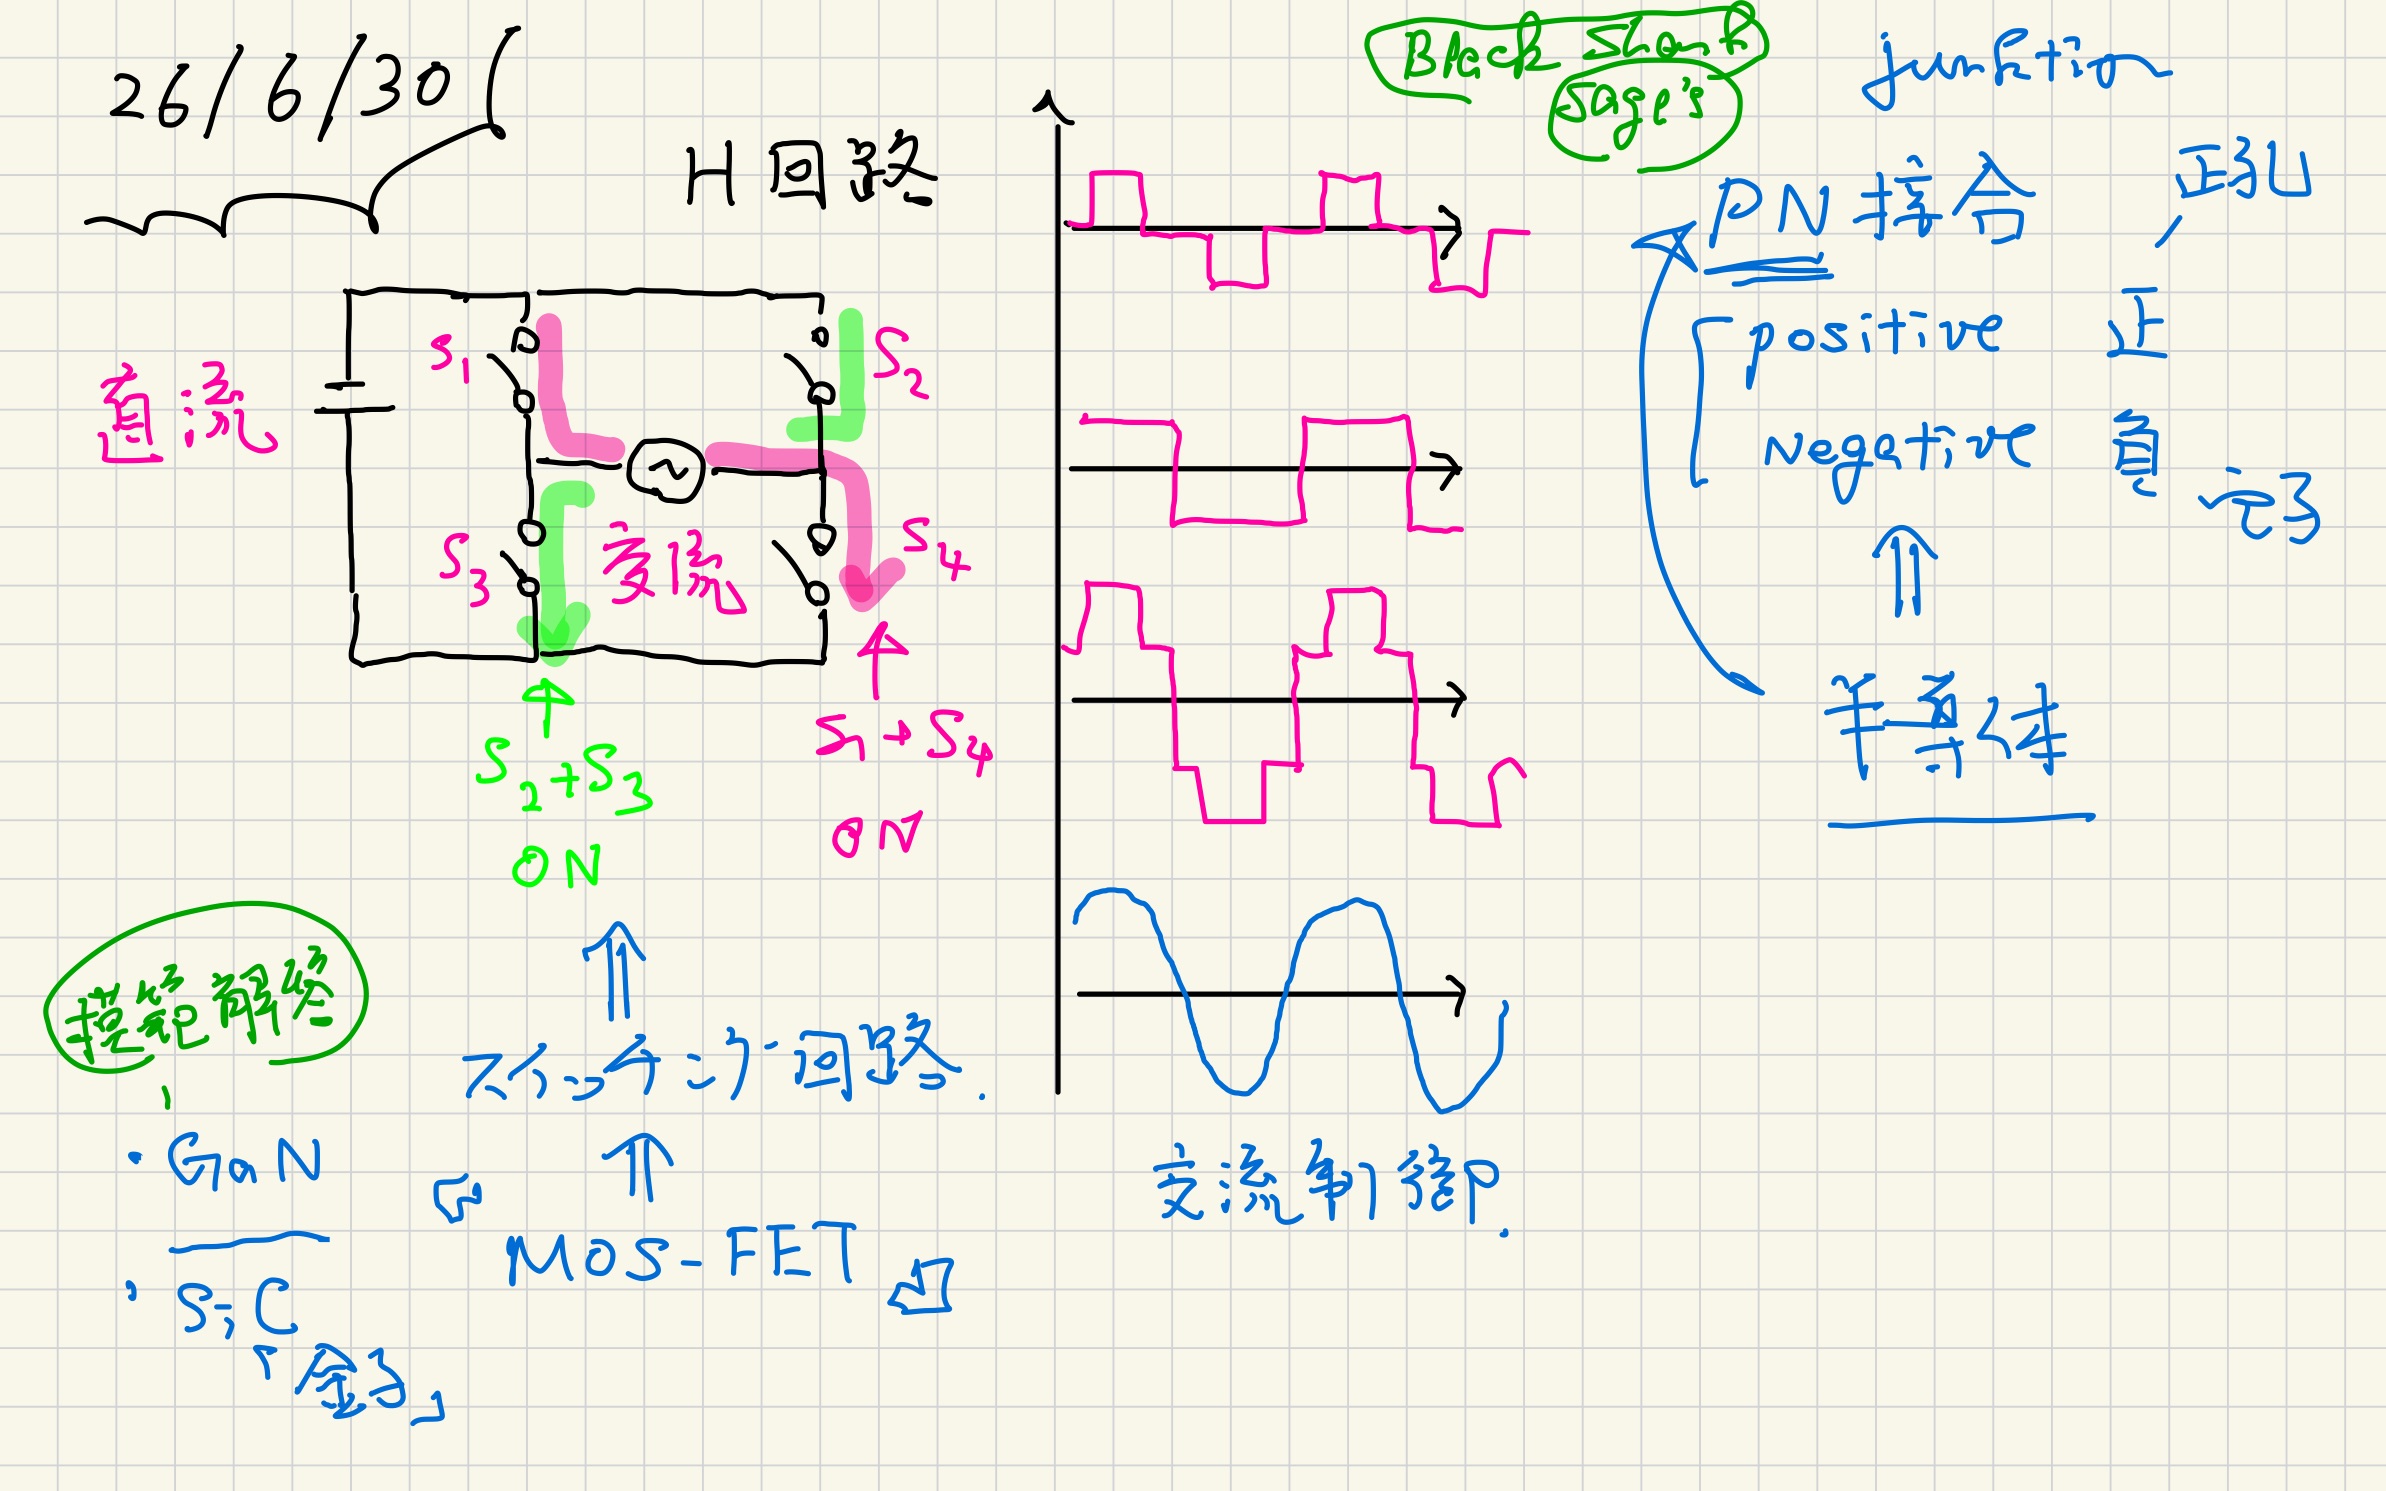 26/6/30
H回路
直流
S1
S2
S3
S4
交流
S2+S3
ON
S1+S4
ON
スイッチング回路.
MOS-FET
・GaN
・SiC
交流制御.
Black
junktion
PN接合, 正孔
positive 正
Negative 負
電子
半導体